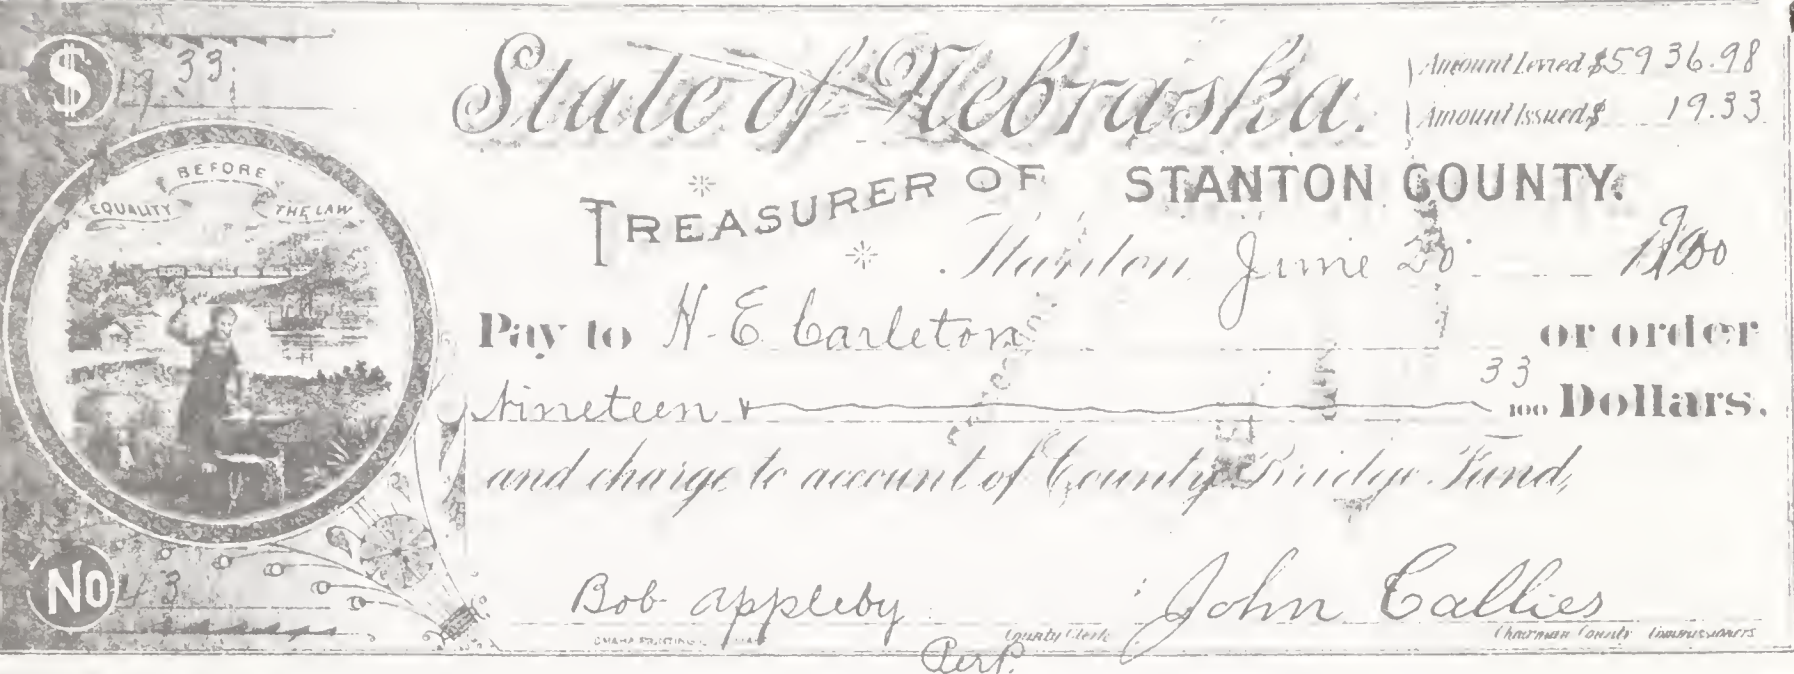 $ 19.33
State of Nebraska.
Amount Levied $5936.98
Amount Issued $ 19.33
EQUALITY BEFORE THE LAW
TREASURER OF STANTON COUNTY.
Stanton June 20 1900
Pay to H. E Carleton or order
Nineteen 33/100 Dollars.
and charge to account of County Bridge Fund,
No 43
Bob Appleby John Callies
OMAHA PRINTING County Clerk Chairman County Commissioners